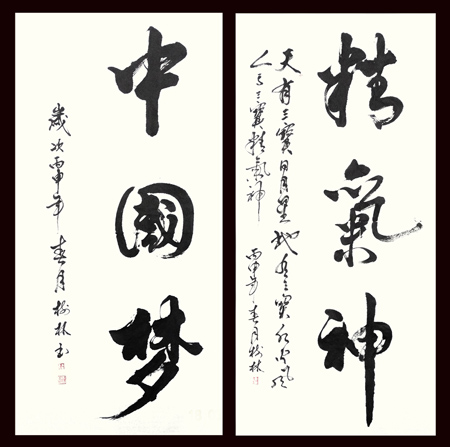 精氣神
天有三寶日月星地有三寶水火风
人有三寶精氣神
丙申年春月樹林
中國梦
歲次丙申年春月樹林书